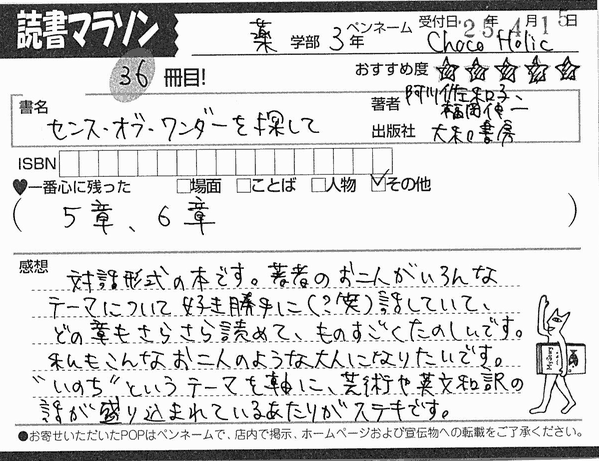 読書マラソン
薬 学部 3年 ペンネーム Choco Holic 受付日・25年4月15日
36 冊目!
おすすめ度 ☆☆☆☆☆
書名 センス・オブ・ワンダーを探して
著者 阿川佐和子 福岡伸一
出版社 大和書房
ISBN
♥一番心に残った □場面 □ことば □人物 ☑その他
( 5章、6章 )
感想
対話形式の本です。著者のお二人がいろんな
テーマについて好き勝手に(?笑)話していて、
どの章もさらさら読めて、ものすごくたのしいです。
私もこんなお二人のような大人になりたいです。
"いのち"というテーマを軸に、芸術や英文和訳の
話が盛り込まれているあたりがステキです。
●お寄せいただいたPOPはペンネームで、店内で掲示、ホームページおよび宣伝物への転載をご了承ください。